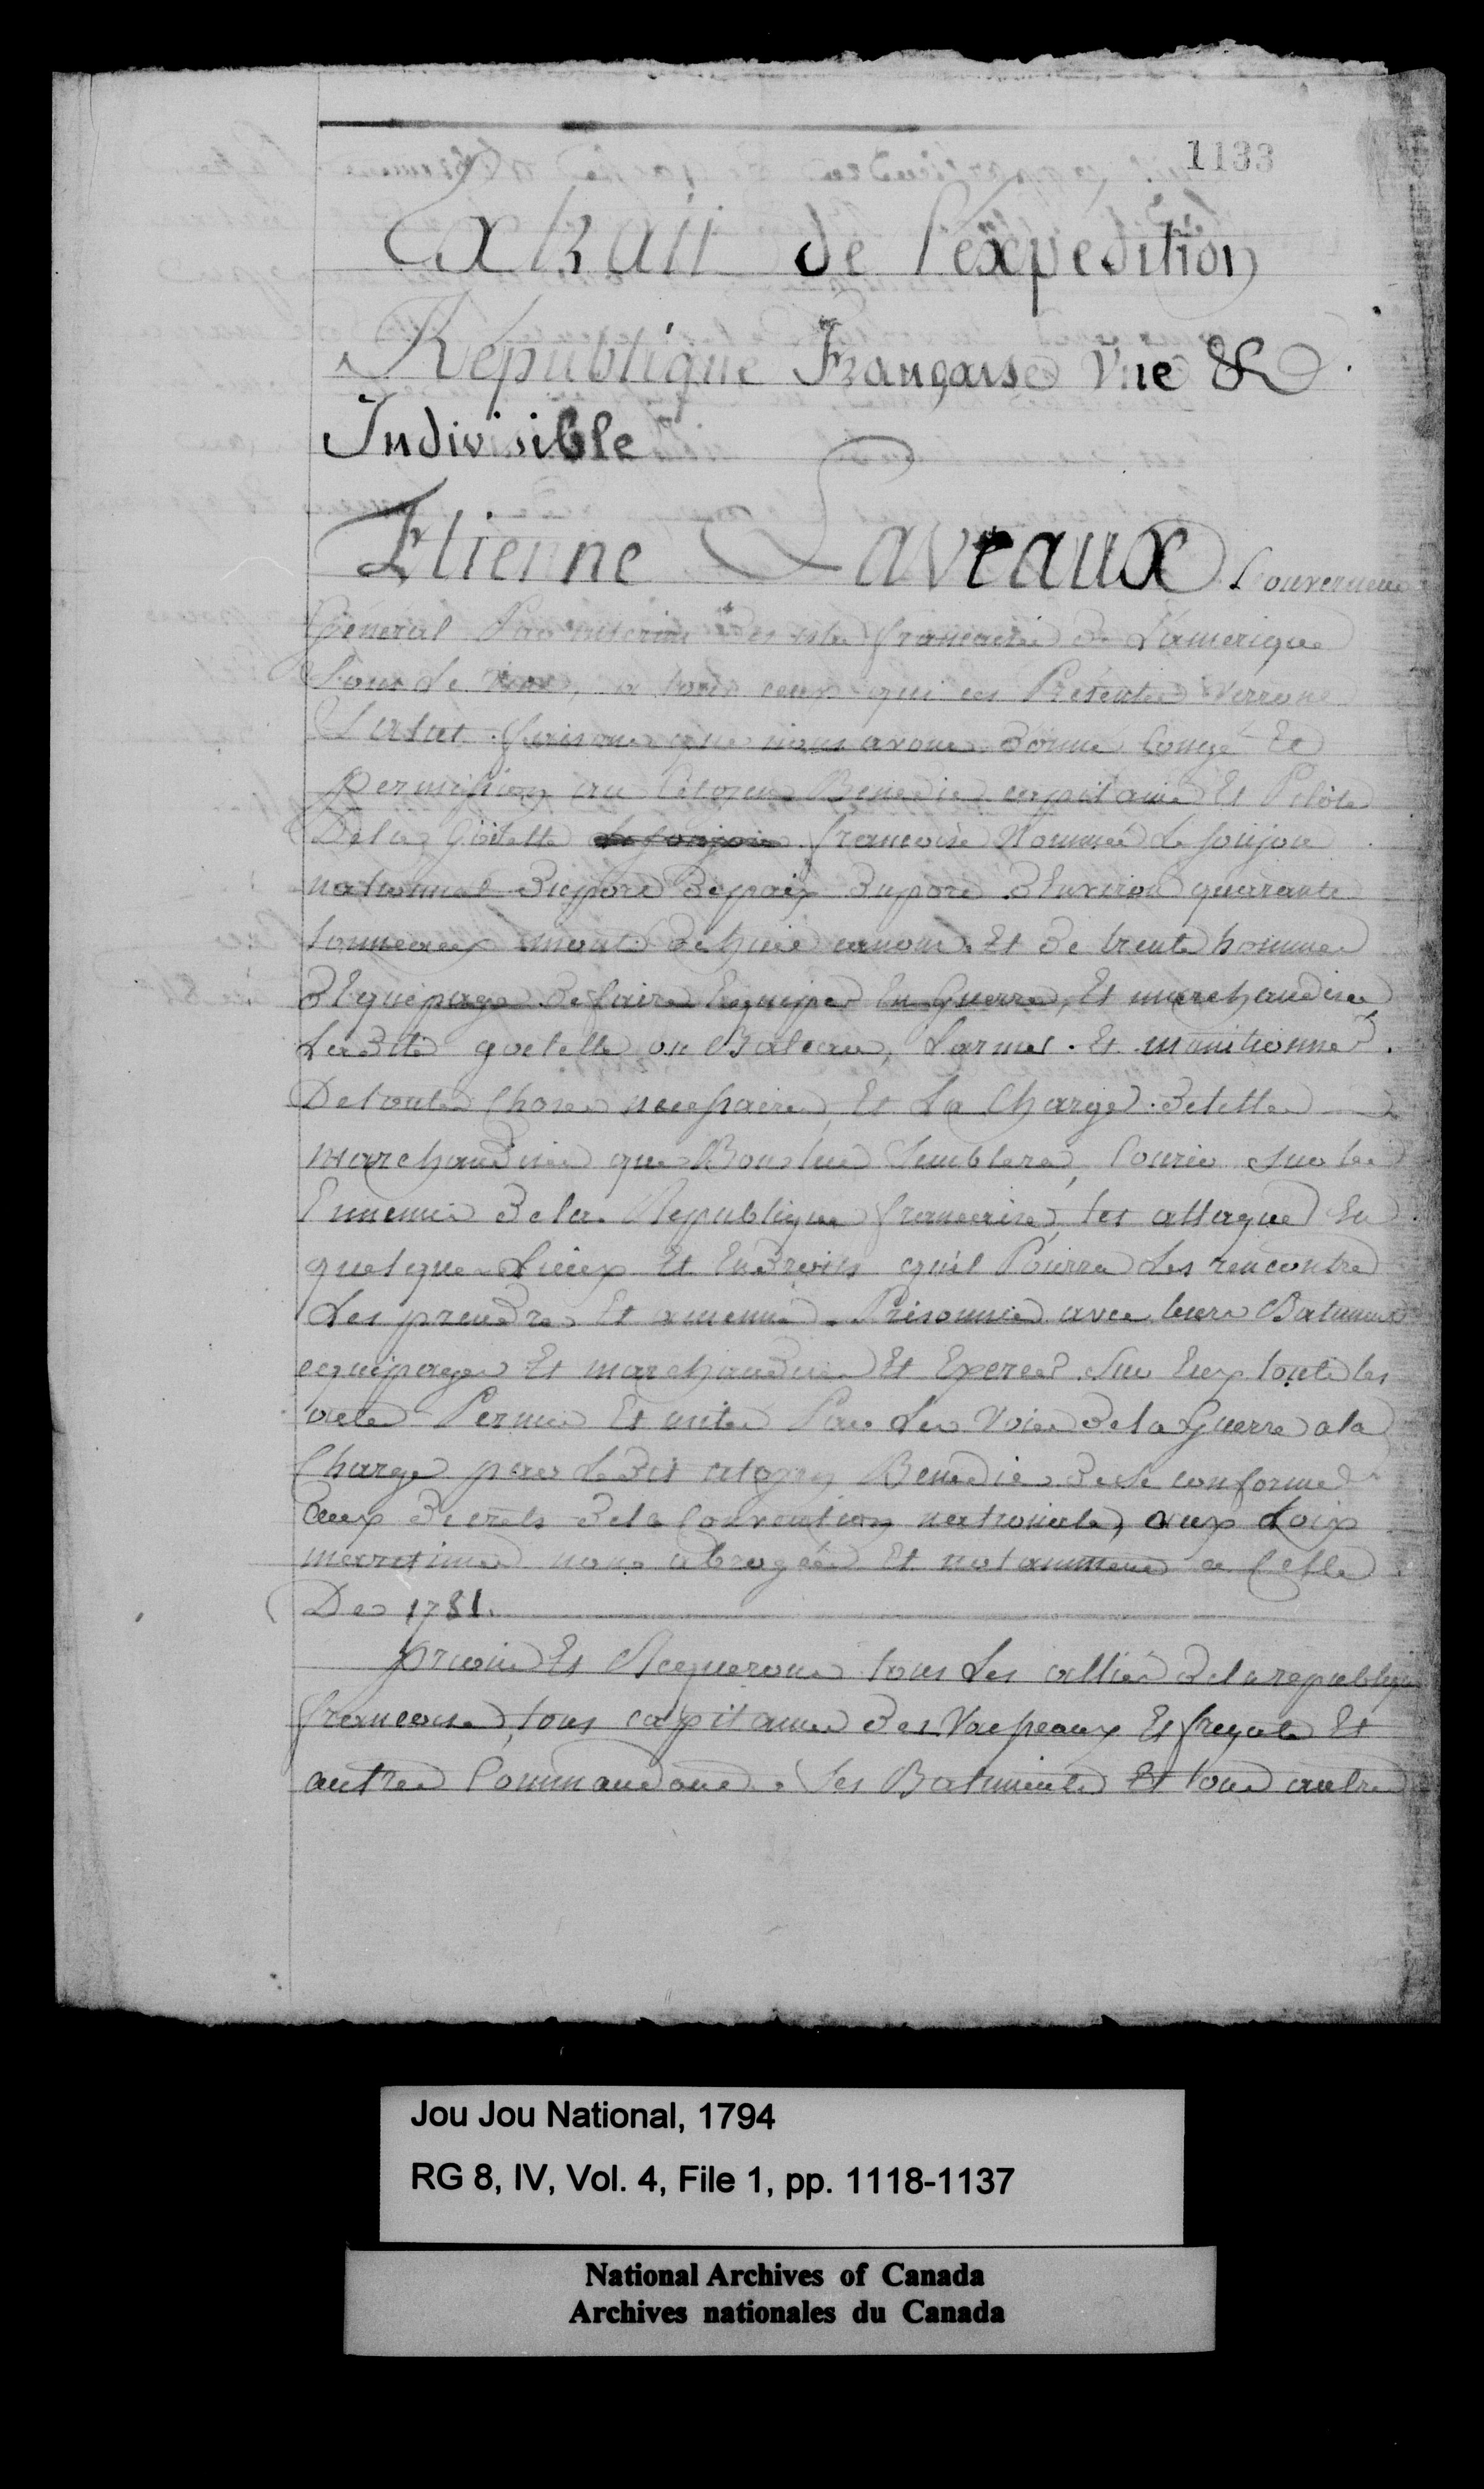 1133
Extrait de l'éxpedition
République Française Vne &
Indivisible
Etienne Laveaux Gouverneur
Général Par interim des isles francaise de L'amerique
Sous le vent, a tous ceux qui ces Présentes verrons
Salut faisons que nous avons donné Congé Et
permission au Citoyen Benedic capitaine Et Pilote
De la Goëlette francoise Nommée Le Joujou
national du port de paix du port d'Environ quarante
tonneaux monté de huit canons Et de trente homme
d'Equipage de faire Equiper En Guerre, Et marchandise
La dite goelette ou Bateau, L'armer. Et munitionner
De toutes Choses necessaire, Et La Charger de telle
marchandises que Bon lui Semblera, Courir sur les
Ennemis de la Republique francaise, les attaquer En
quelque Lieux Et Endroits qu'il Pourra Les rencontre
Les prendre Et amenné Prisonnié avec leurs Batiments
equipages Et marchandises Et Exercer Sur Eux toute les
acte Permis Et usité Par Les Voies de la Guerre a la
Charge par Le dit citoyen Benedic de Se conformer
aux decrets de la Convention nationale, aux Loix
marritimes nons abrogées Et notamment a Celle
De 1781.
prions Et Requerons tous Les alliés de la republique
francoise, tous capitaines des Vaisseaux Et fregate Et
autre Commandant. Ses Batiments Et tous autre
Jou Jou National, 1794
RG 8, IV, Vol. 4, File 1, pp. 1118-1137
National Archives of Canada
Archives nationales du Canada